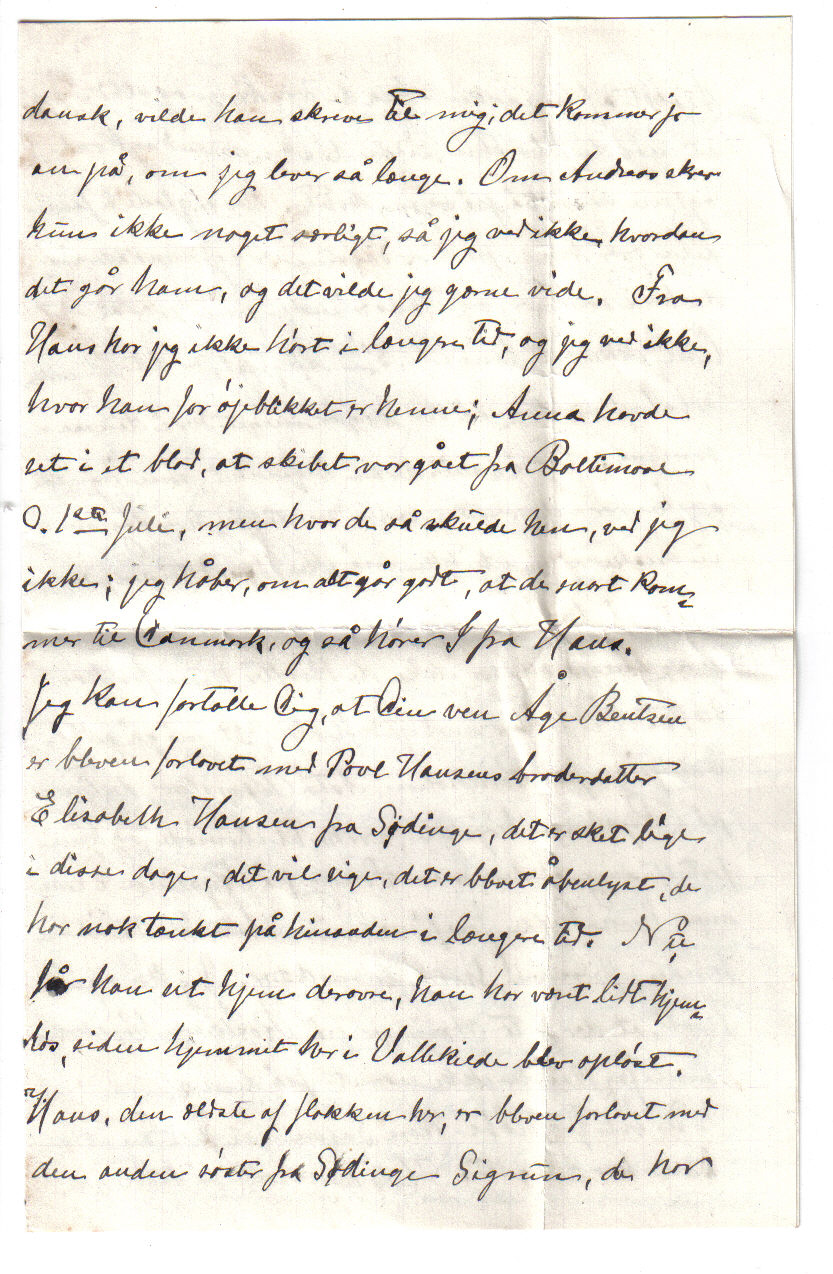 dansk, vilde han skrive til mig; det kommer jo
an på, om jeg lever så længe. Om Andreas skrev
hun ikke noget særligt, så jeg ved ikke, hvordan
det går ham, og det vilde jeg gærne vide. Fra
Hans har jeg ikke hört i længere tid, og jeg ved ikke,
hvor han for öjeblikket er henne; Anna havde
set i et blad, at skibet var gået fra Baltimore
d. 1ste Juli, men hvor de så skulde hen, ved jeg
ikke; jeg håber, om alt går godt, at de snart kom=
mer til Danmark, og så hörer I fra Hans.
Jeg kan fortælle Dig, at Din ven Åge Bentsen
er bleven forlovet med Povl Hansens broderdatter
Elisabeth Hansen fra Sødinge, det er sket lige
i disse dage, det vil sige, det er blevet åbenlyst, de
har nok tænkt på hinanden i længere tid. Nu
får han et hjem derovre, han har været lidt hjem=
lös, siden hjemmet her i Vallekilde blev oplöst.
Hans, den ældste af flokken her, er bleven forlovet med
den anden söster fra Sødinge Sigrun, de har